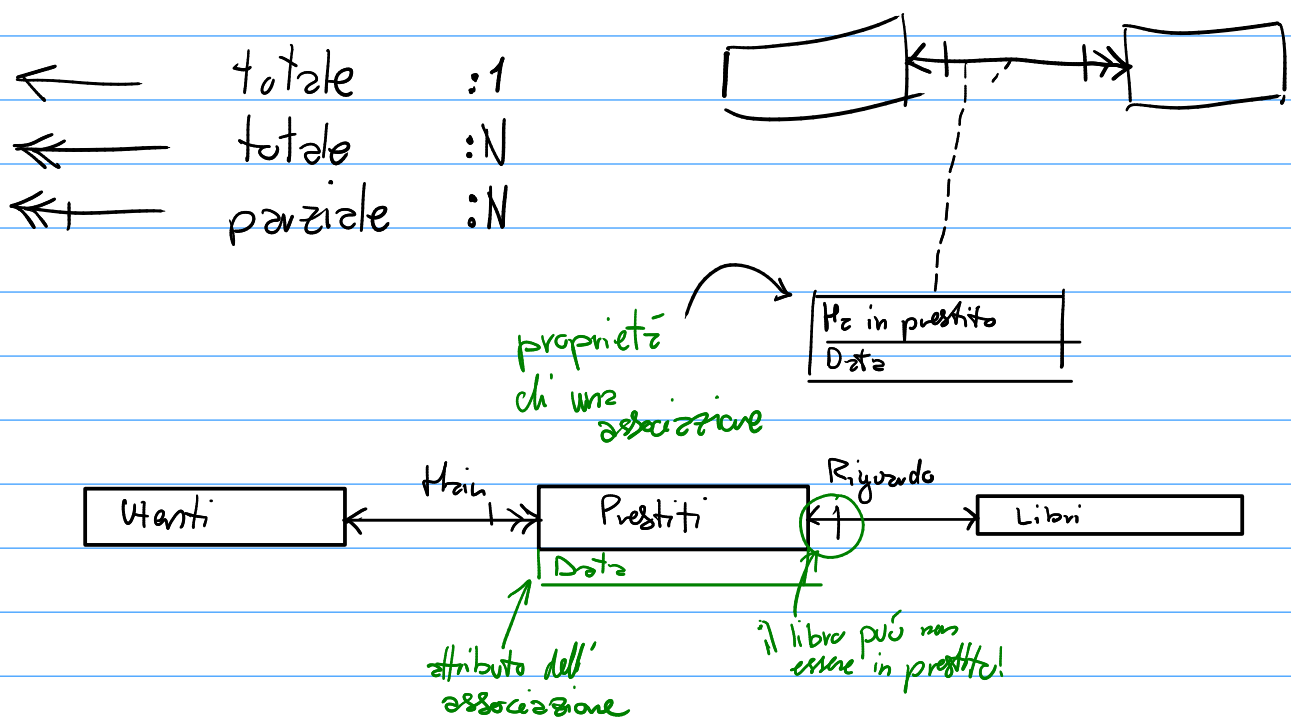 totale :1
totale :N
parziale :N
Ha in prestito
Data
proprietà
di una
associazione
Utenti
Ha in
Prestiti
Riguardo
Libri
Data
attributo dell'
associazione
il libro può non
essere in prestito!